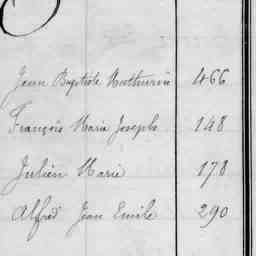 Jean Baptiste Mathurin 466
François Marie Joseph 148
Julien Marie 178
Alfred Jean Emile 290